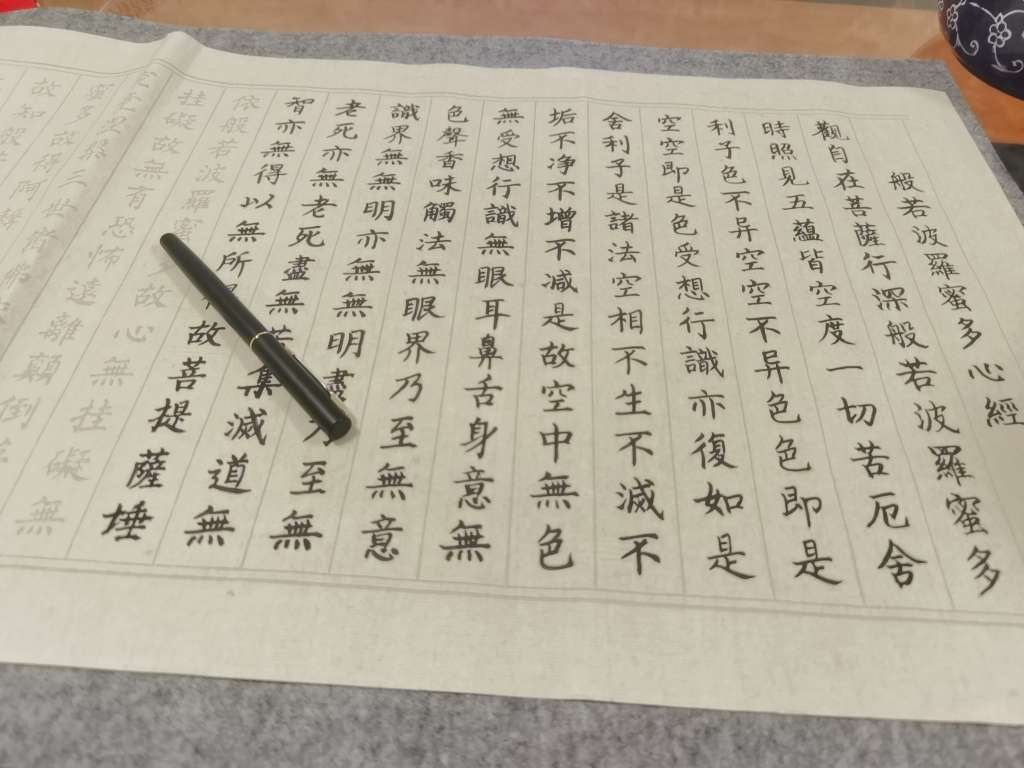 般若波羅蜜多心經
觀自在菩薩行深般若波羅蜜多
時照見五蘊皆空度一切苦厄舍
利子色不异空空不异色色即是
空空即是色受想行識亦復如是
舍利子是諸法空相不生不滅不
垢不净不增不減是故空中無色
無受想行識無眼耳鼻舌身意無
色聲香味觸法無眼界乃至無意
識界無無明亦無無明盡乃至無
老死亦無老死盡無苦集滅道無
智亦無得以無所得故菩提薩埵
依般若波羅蜜多故心無挂礙無
挂礙故無有恐怖遠離顛倒
故知般